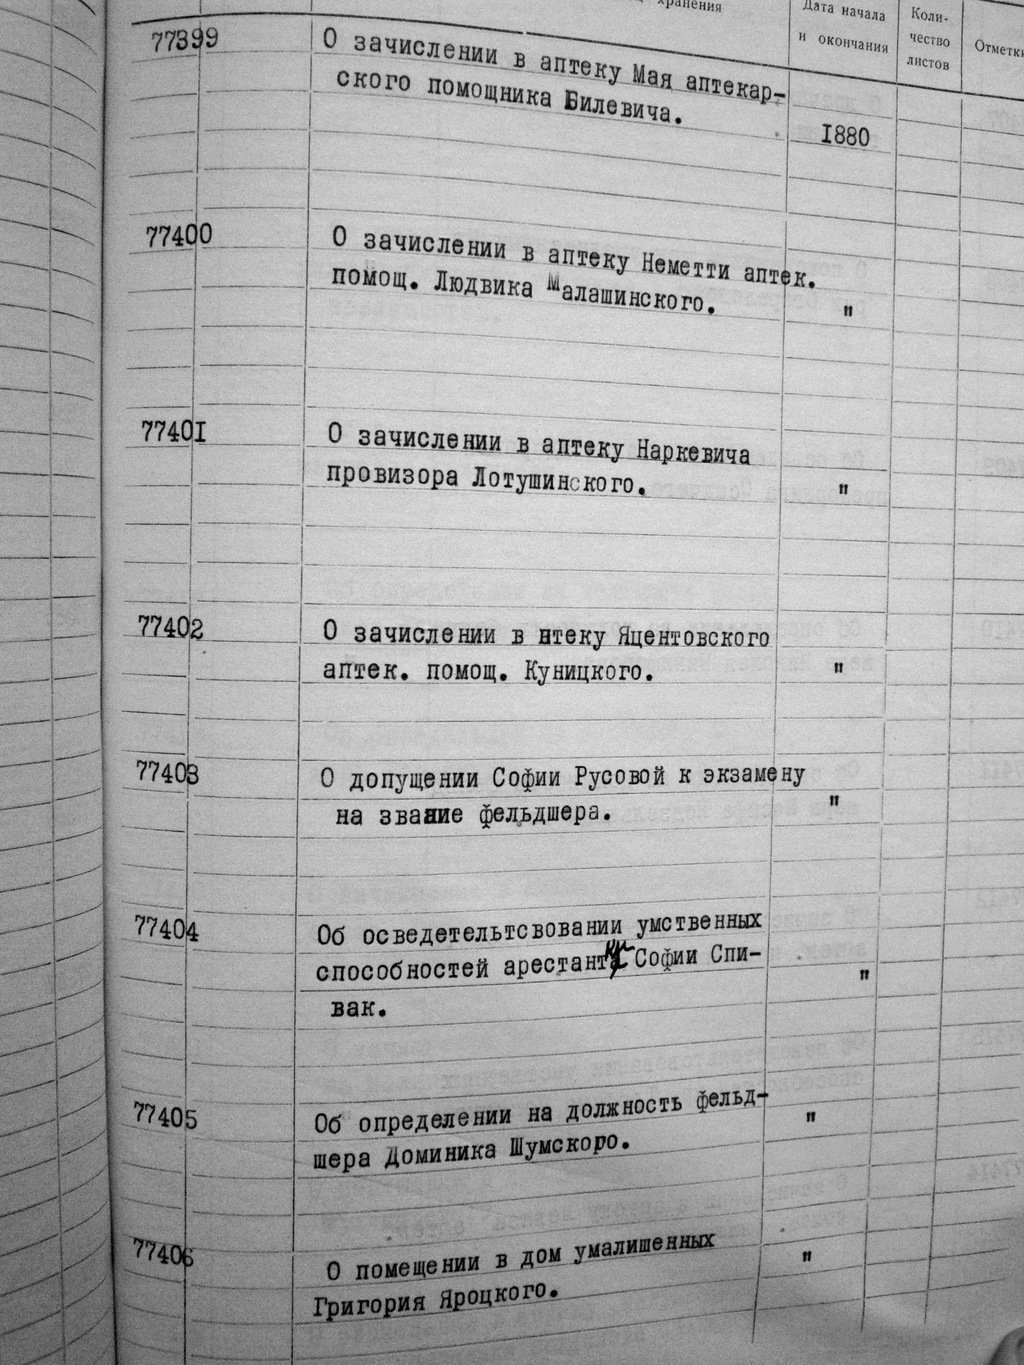 хранения
Дата начала
и окончания
Коли-
чество
листов
Отметки
77399 О зачислении в аптеку Мая аптекар-
ского помощника Билевича.
1880
77400 О зачислении в аптеку Неметти аптек.
помощ. Людвика Малашинского. "
77401 О зачислении в аптеку Наркевича
провизора Лотушинского. "
77402 О зачислении в нтеку Яцентовского
аптек. помощ. Куницкого. "
77403 О допущении Софии Русовой к экзамену
на звание фельдшера. "
77404 Об осведетельтсвовании умственных
способностей арестантки Софии Спи-
вак. "
77405 Об определении на должность фельд-
шера Доминика Шумского. "
77406 О помещении в дом умалишенных
Григория Яроцкого. "